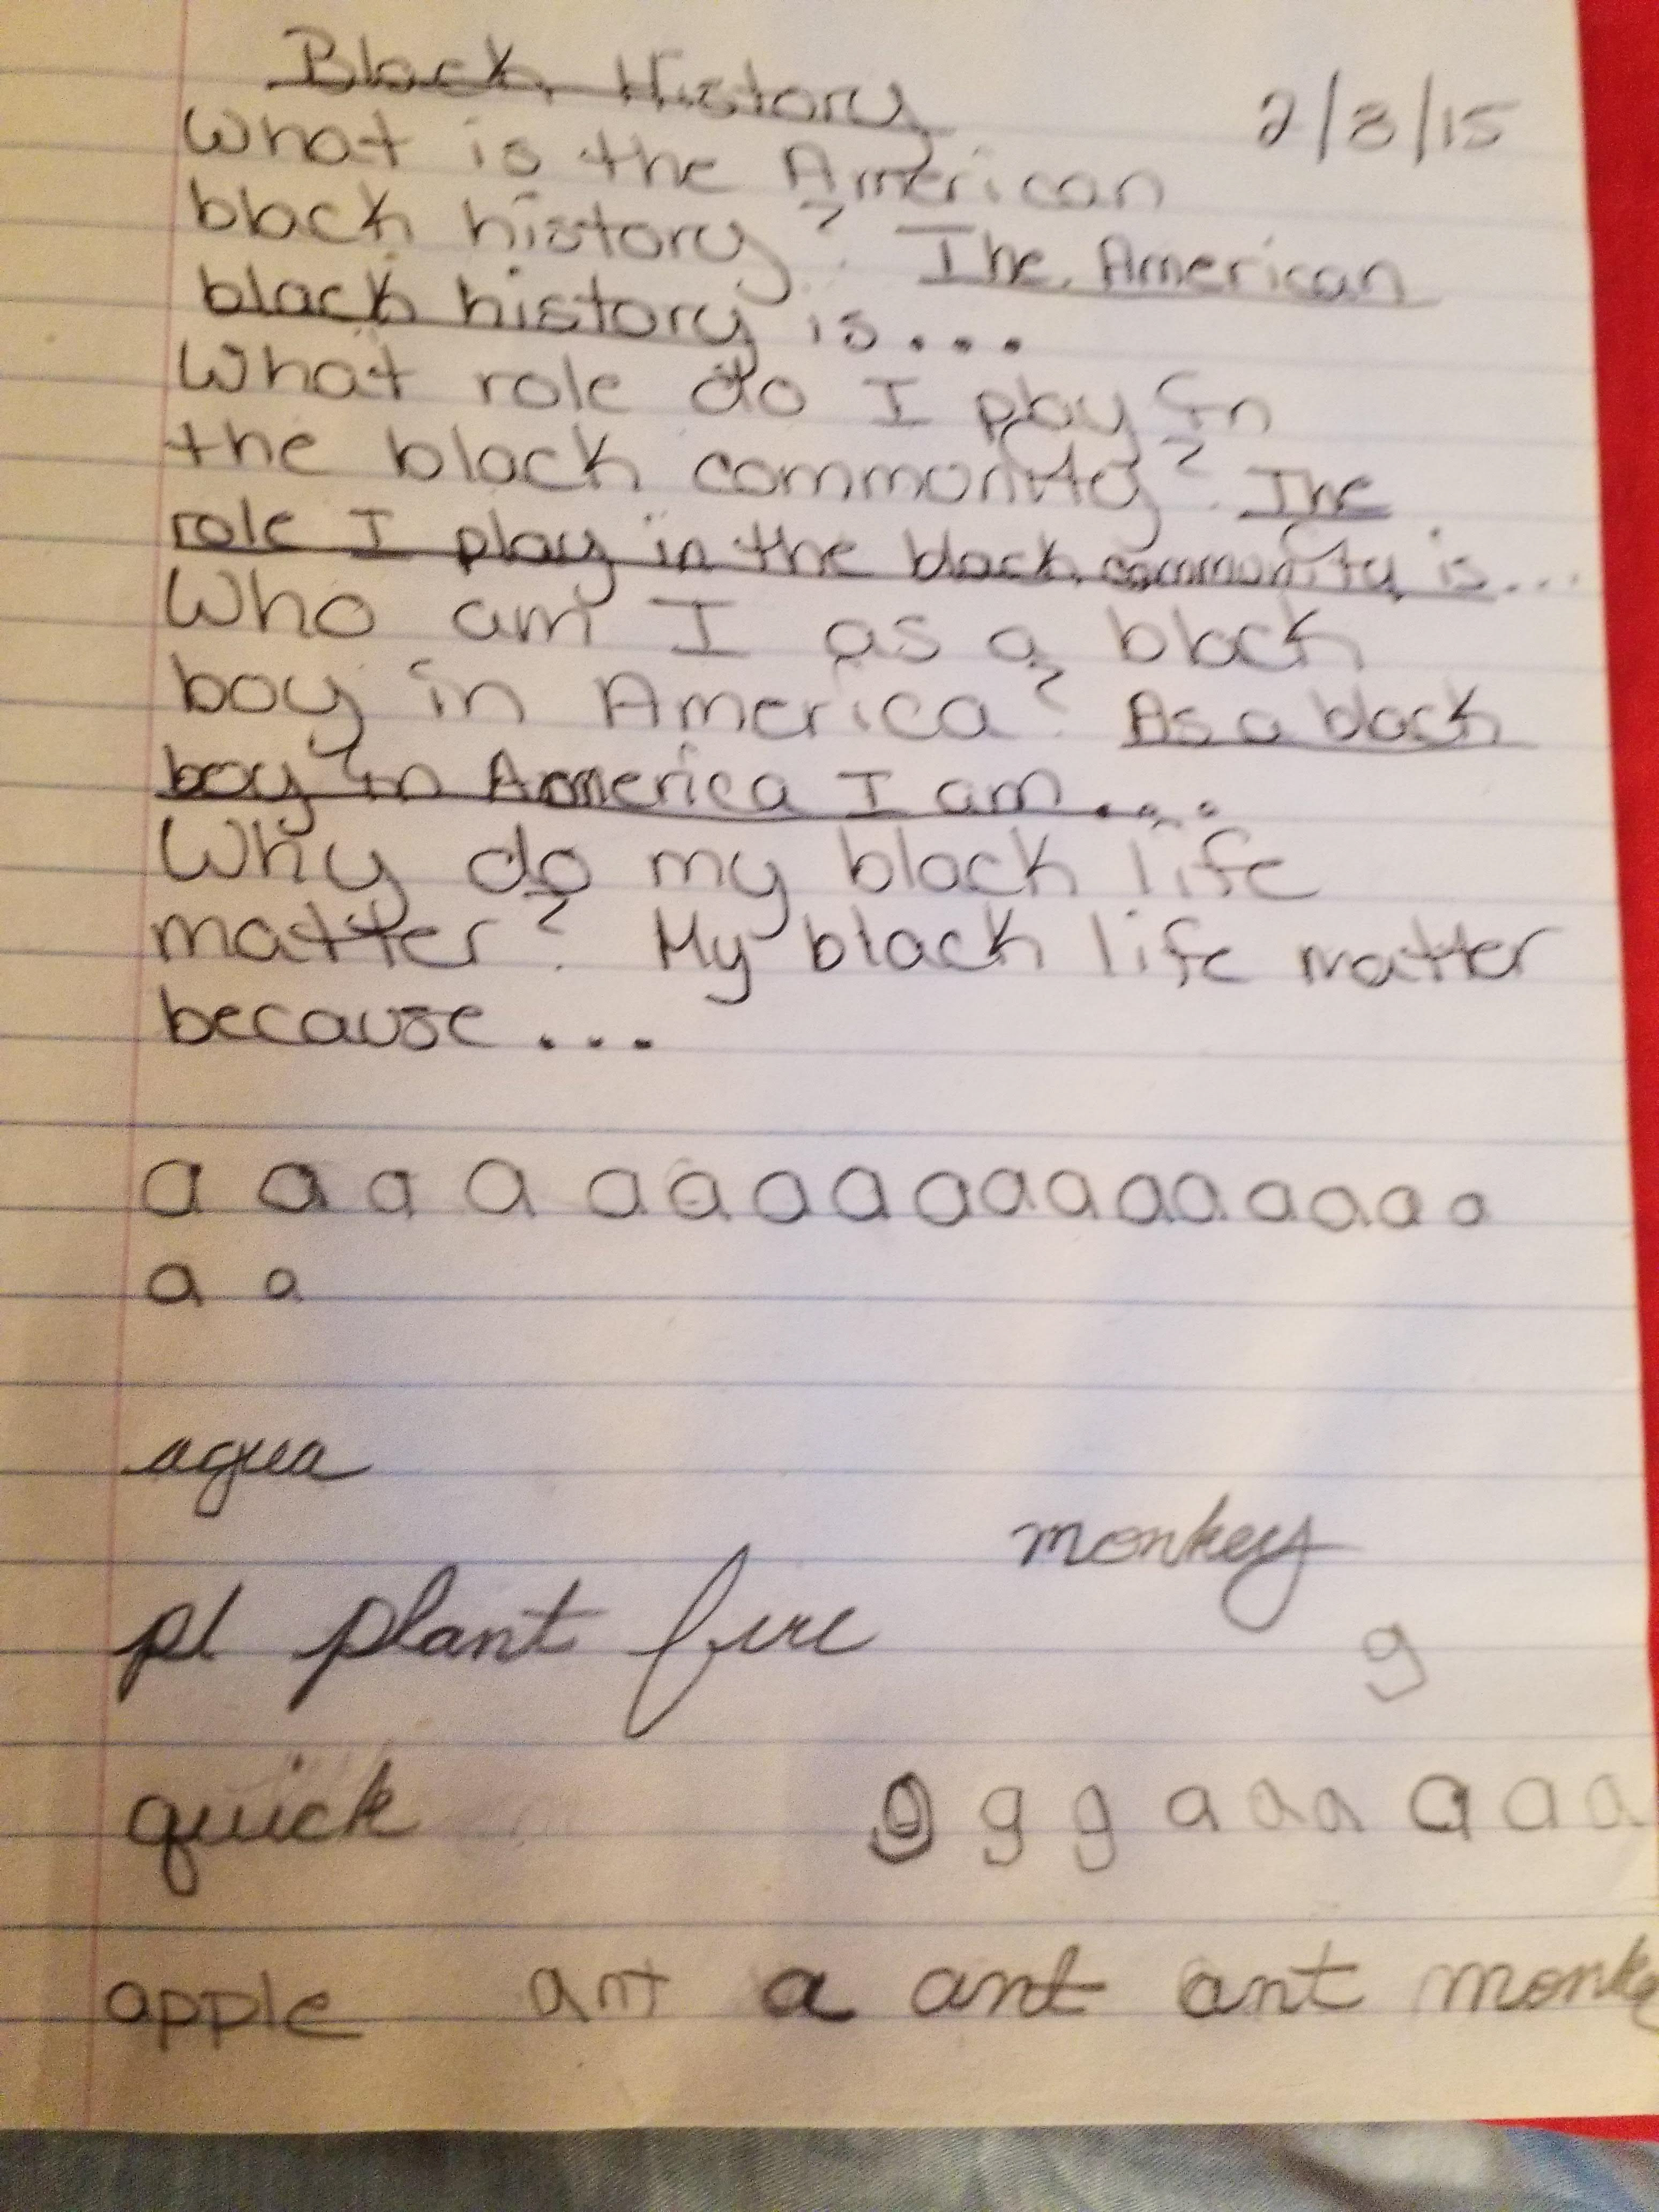 Black History
2/8/15
What is the American
black history? The American
black history is...
What role do I play in
the black community? The
role I play in the black community is...
Who am I as a black
boy in America? As a black
boy in America I am....
Why do my black life
matter? My black life matter
because...
a a a a a a a a a a a a a a a a a
a a
agua
monkey
pl plant fire
g
quick
g g g a a a a a a
apple ant a ant ant monke